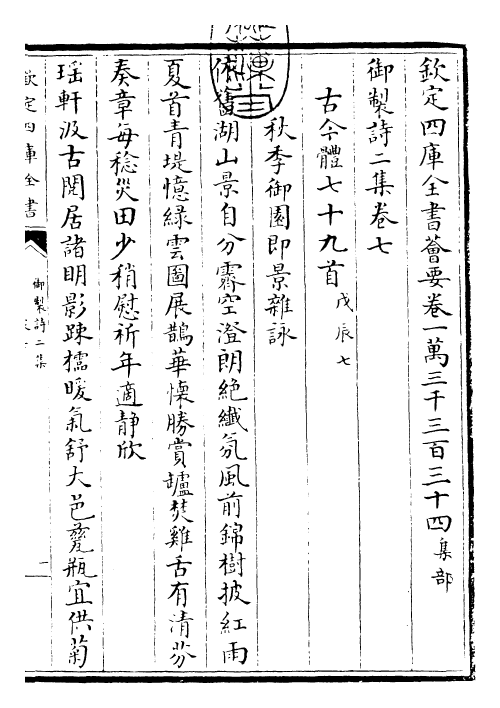 欽定四庫全書薈要卷一萬三千三百三十四集部
御製詩二集卷七
古今體七十九首戊辰七
秋季御園即景雜詠
依舊湖山景自分霽空澄朗絕纖氛風前錦樹披紅雨
夏首青堤憶綠雲圖展鵲華懷勝賞罏焚雞舌有清芬
奏章每稔災田少稍慰祈年適静欣
瑶軒汲古閒居諸明影疎櫺暖氣舒大邑甆瓶宜供菊
欽定四庫全書
御製詩二集
一